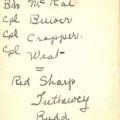 Bdr McKal
Cpl Buiser
Cpl Crapper.
Cpl West
Red Sharp
Tuthewcy
Rudd